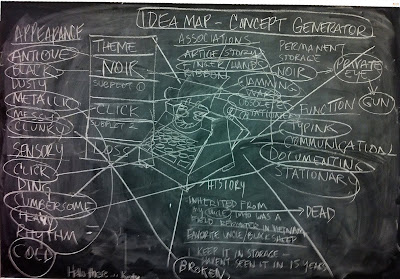 IDEA MAP - CONCEPT GENERATOR
APPEARANCE
ANTIQUE
BLACK
DUSTY
METALLIC
MESSY
CLUNKY
SENSORY
CLICK
DING
CUMBERSOME
HEAVY
RHYTHM
COLD
THEME
NOIR
SUBPLOT 1
CLICK
SUBPLOT 2
LOSS
ASSOCIATIONS
ARTICLE/STORY
INK ER/HANDS
RIBBON
JAMMING
WAR
OBSOLETE
PERMANENT
STORAGE
NOIR
PRIVATE
EYE
GUN
FUNCTION
TYPING
COMMUNICATION/
DOCUMENTING
STATIONARY
HISTORY
INHERITED FROM
MY UNCLE WHO WAS A
FIELD REPORTER IN VIETNAM
FAVORITE UNCLE/BLACK SHEEP
DEAD
I KEEP IT IN STORAGE
HAVEN'T SEEN IT IN 15 YEARS
BROKEN